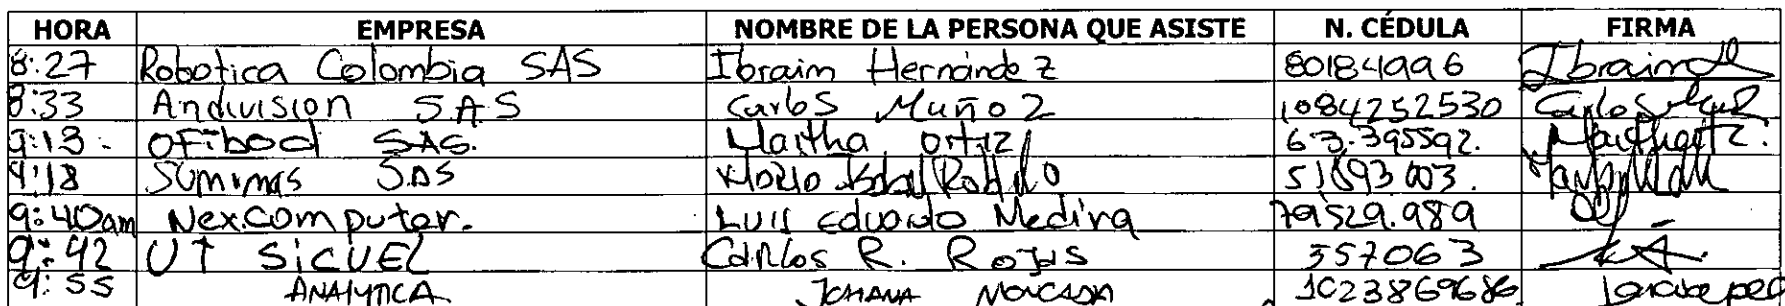 HORA EMPRESA NOMBRE DE LA PERSONA QUE ASISTE N. CÉDULA FIRMA
8:27 Robotica Colombia SAS Ibraim Hernández 80184996 Ibraim
8:33 Andivision S.A.S Carlos Muñoz 1084252530 Carlos
9:13 OFibod SAS. Martha Ortiz 63.395592.
9:18 Sumimas SAS 51693003.
9:40am Nex Computer. Luis Eduardo Medina 79529.989
9:42 UT SICUEL Carlos R. Rojas 357063
9:55 ANALYTICA JOHANA MONCADA 1023869686